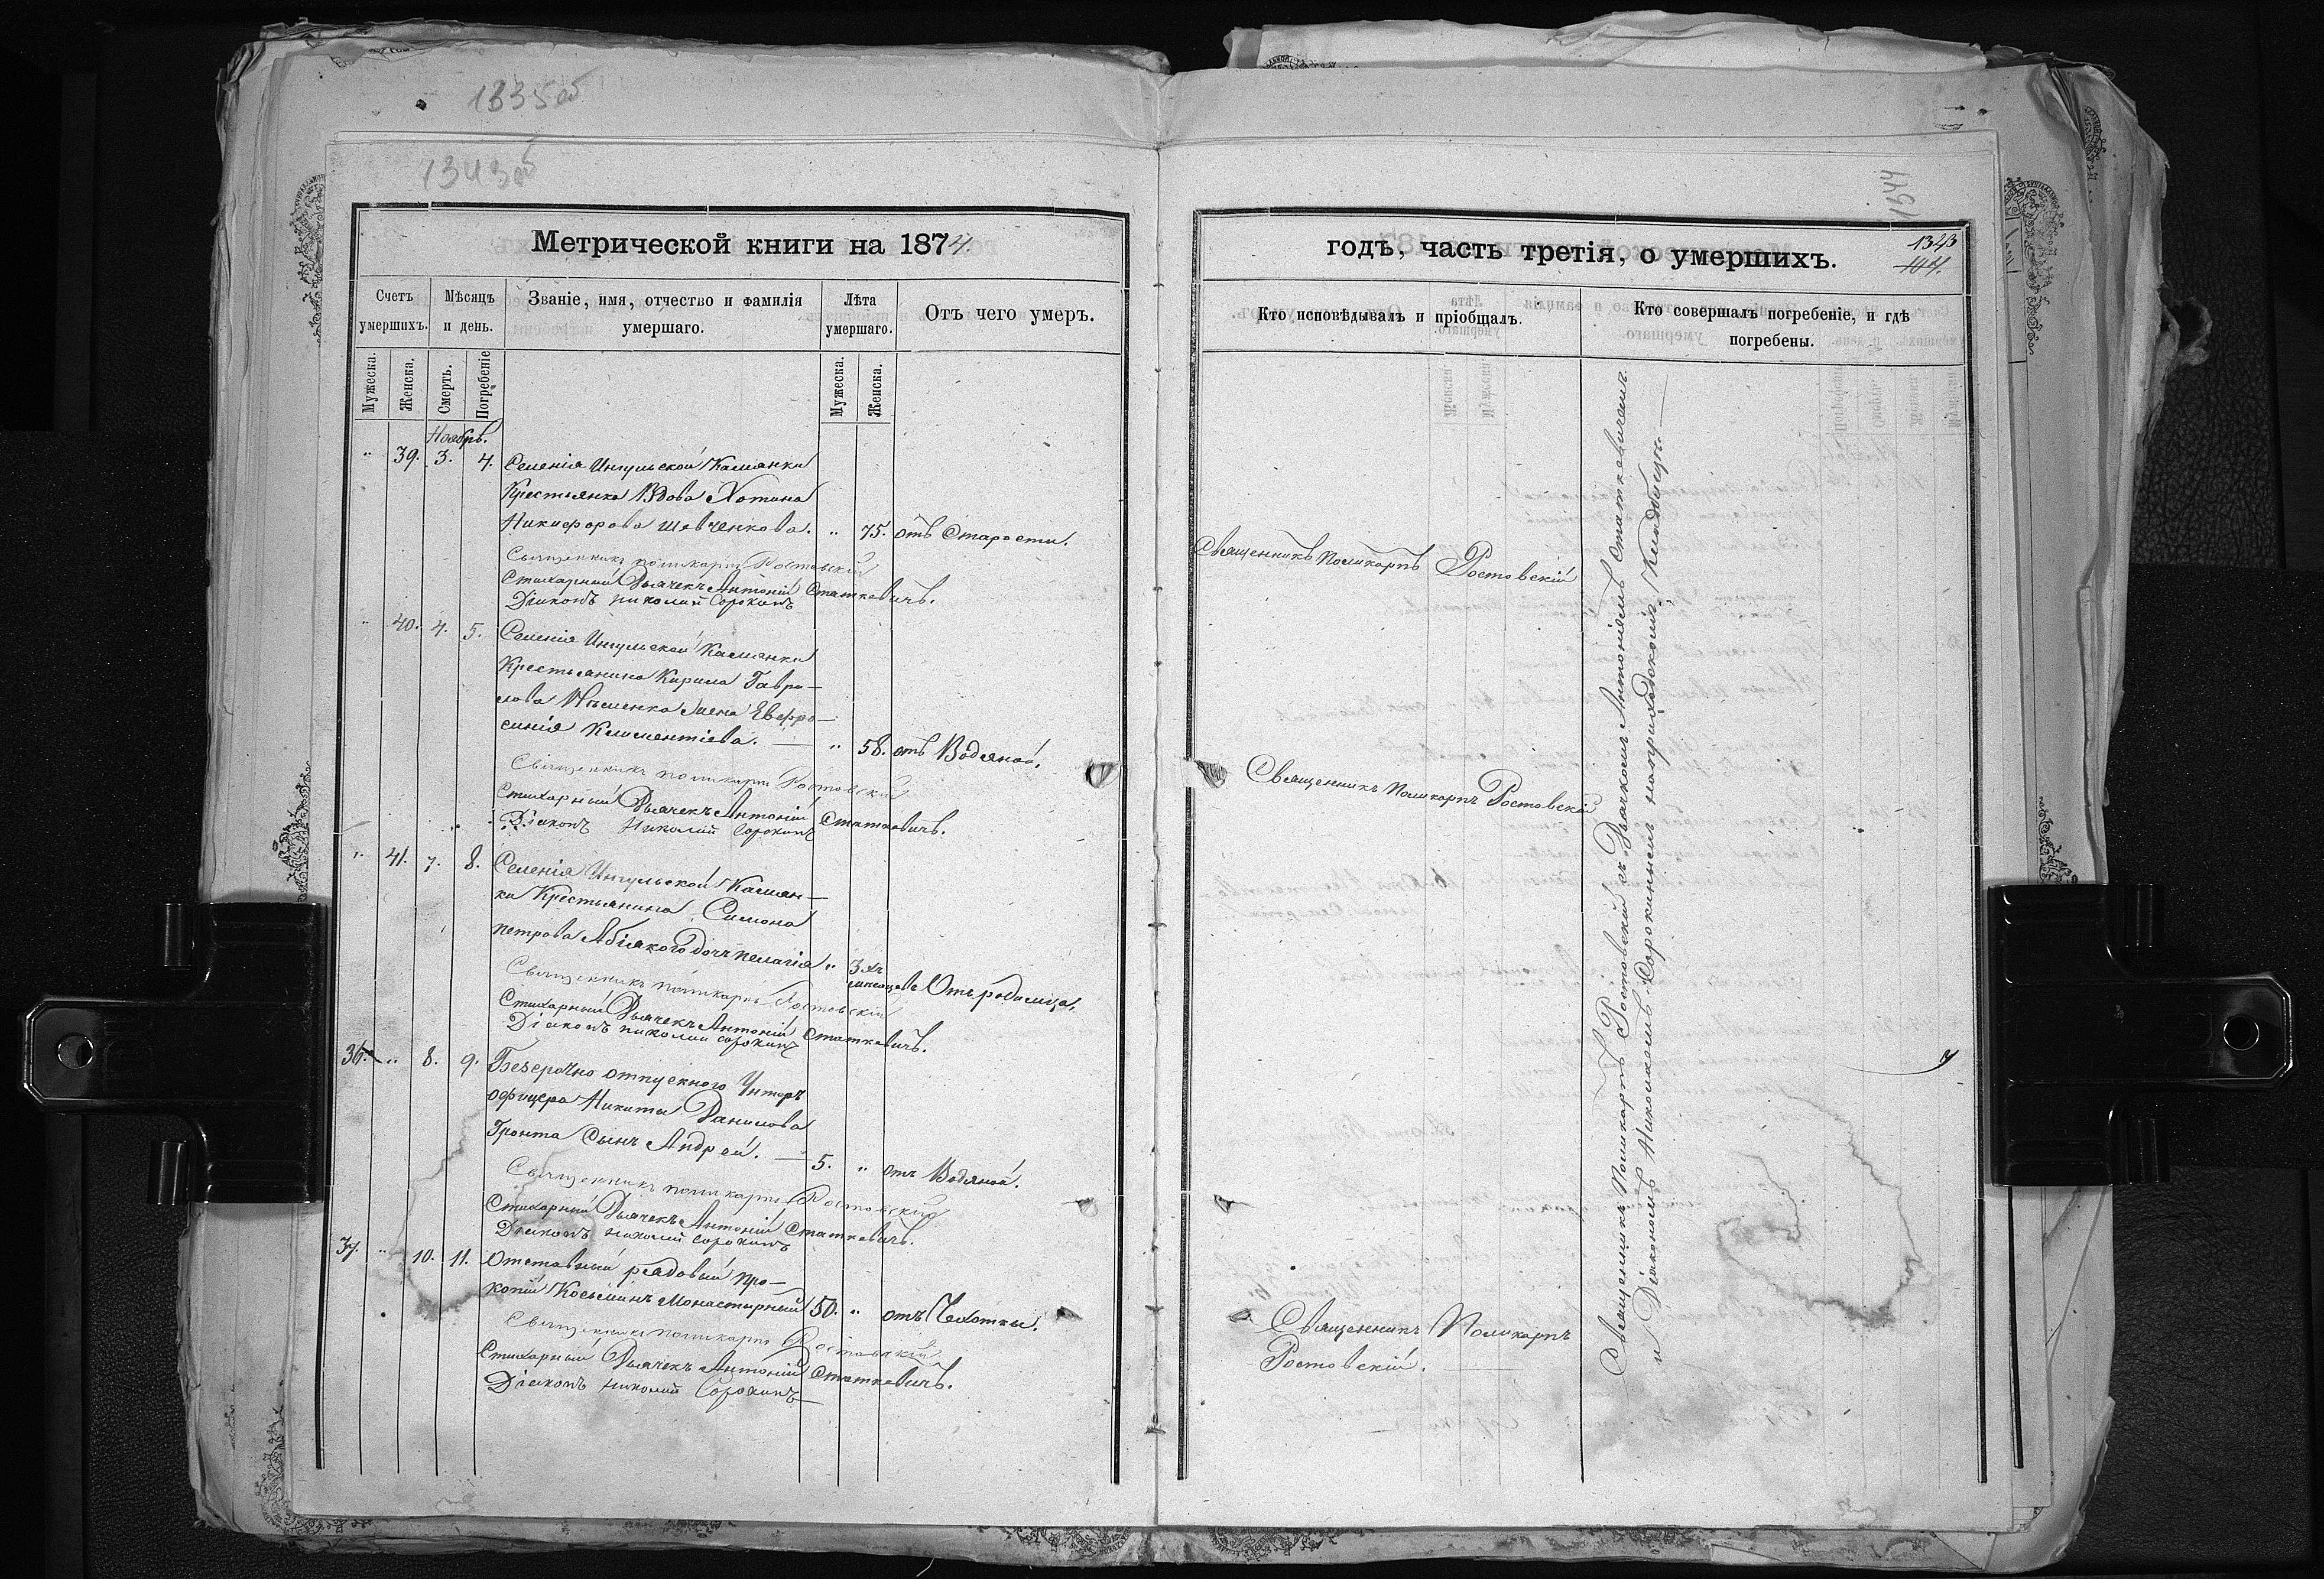 1335об
1343об
Метрической книги на 1874.
Счетъ умершихъ.
Мѣсяцъ и день.
Званіе, имя, отчество и фамилія умершаго.
Лѣта умершаго.
Отъ чего умеръ.
Мужеска.
Женска.
Смерть.
Погребеніе
Мужеска.
Женска.
Ноябрь.
" 39. 3. 4. Селенія Ингульской Каменки
Крестьянка Вдова Хотина
Никифорова Шевченкова. " 75. отъ Старости.
Священникъ Поликарпъ Ростовскій
Стихарный Дьячекъ Антоній Статкевичъ.
Діаконъ Николай Сорокинъ
" 40. 4. 5. Селенія Ингульской Каменки
Крестьянина Кирила Гаври-
лова жена Евфро-
синія Климентіева. — " 58. отъ Водяной.
Священникъ Поликарпъ Ростовскій
Стихарный Дьячекъ Антоній Статкевичъ.
Діаконъ Николай Сорокинъ
" 41. 7. 8. Селенія Ингульской Камен-
ки Крестьянина Симона
Петрова дочь Пелагія " 3хъ
месяцевъ Отъ родимца.
Священникъ Поликарпъ Ростовскій
Стихарный Дьячекъ Антоній Статкевичъ.
Діаконъ Николай Сорокинъ
36. " 8. 9. Безсрочно отпускного Унтеръ
офицера Никиты Данилова
Гронта Сынъ Андрей. — 5. " отъ Водяной.
Священникъ Поликарпъ Ростовскій
Стихарный Дьячекъ Антоній Статкевичъ.
Діаконъ Николай Сорокинъ
37. " 10. 11. Отставный рядовый Про-
копій Косьминъ Монастырный 50. " отъ Чахотки.
Священникъ Поликарпъ Ростовскій
Стихарный Дьячекъ Антоній Статкевичъ.
Діаконъ Николай Сорокинъ
1344
годъ, часть третія, о умершихъ.
1343
104.
Кто исповѣдывалъ и пріобщалъ.
Кто совершалъ погребеніе, и гдѣ погребены.
Священникъ Поликарпъ Ростовскій
Священникъ Поликарпъ Ростовскій
Священникъ Поликарпъ
Ростовскій.
Священникъ Поликарпъ Ростовскій съ Дьячкомъ Антоніемъ Статкевичемъ
и Діакономъ Николаемъ Сорокинымъ на приходскомъ Кладбищѣ.